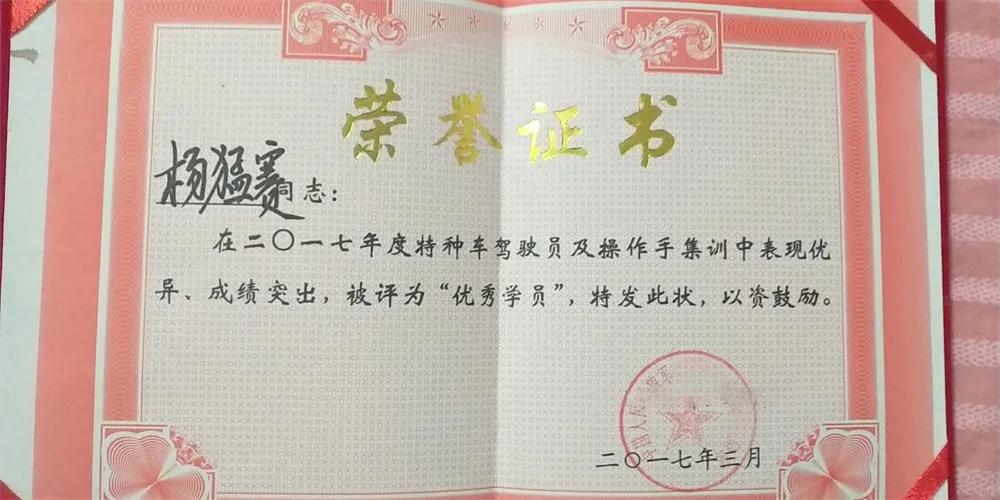 荣誉证书
杨猛赛同志：
在二〇一七年度特种车驾驶员及操作手集训中表现优
异、成绩突出，被评为“优秀学员”，特发此状，以资鼓励。
二〇一七年三月